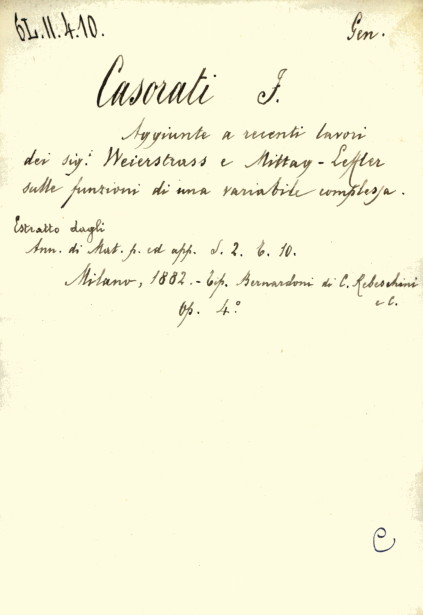 6L.II.4.10. Gen.
Casorati F.
Aggiunte a recenti lavori
dei sig.i Weierstrass e Mittag-Leffler
sulle funzioni di una variabile complessa.
Estratto dagli
Ann. di Mat. p. ed app. S. 2. T. 10.
Milano, 1882. - Tip. Bernardoni di C. Rebeschini
e C.
Op. 4.°
C